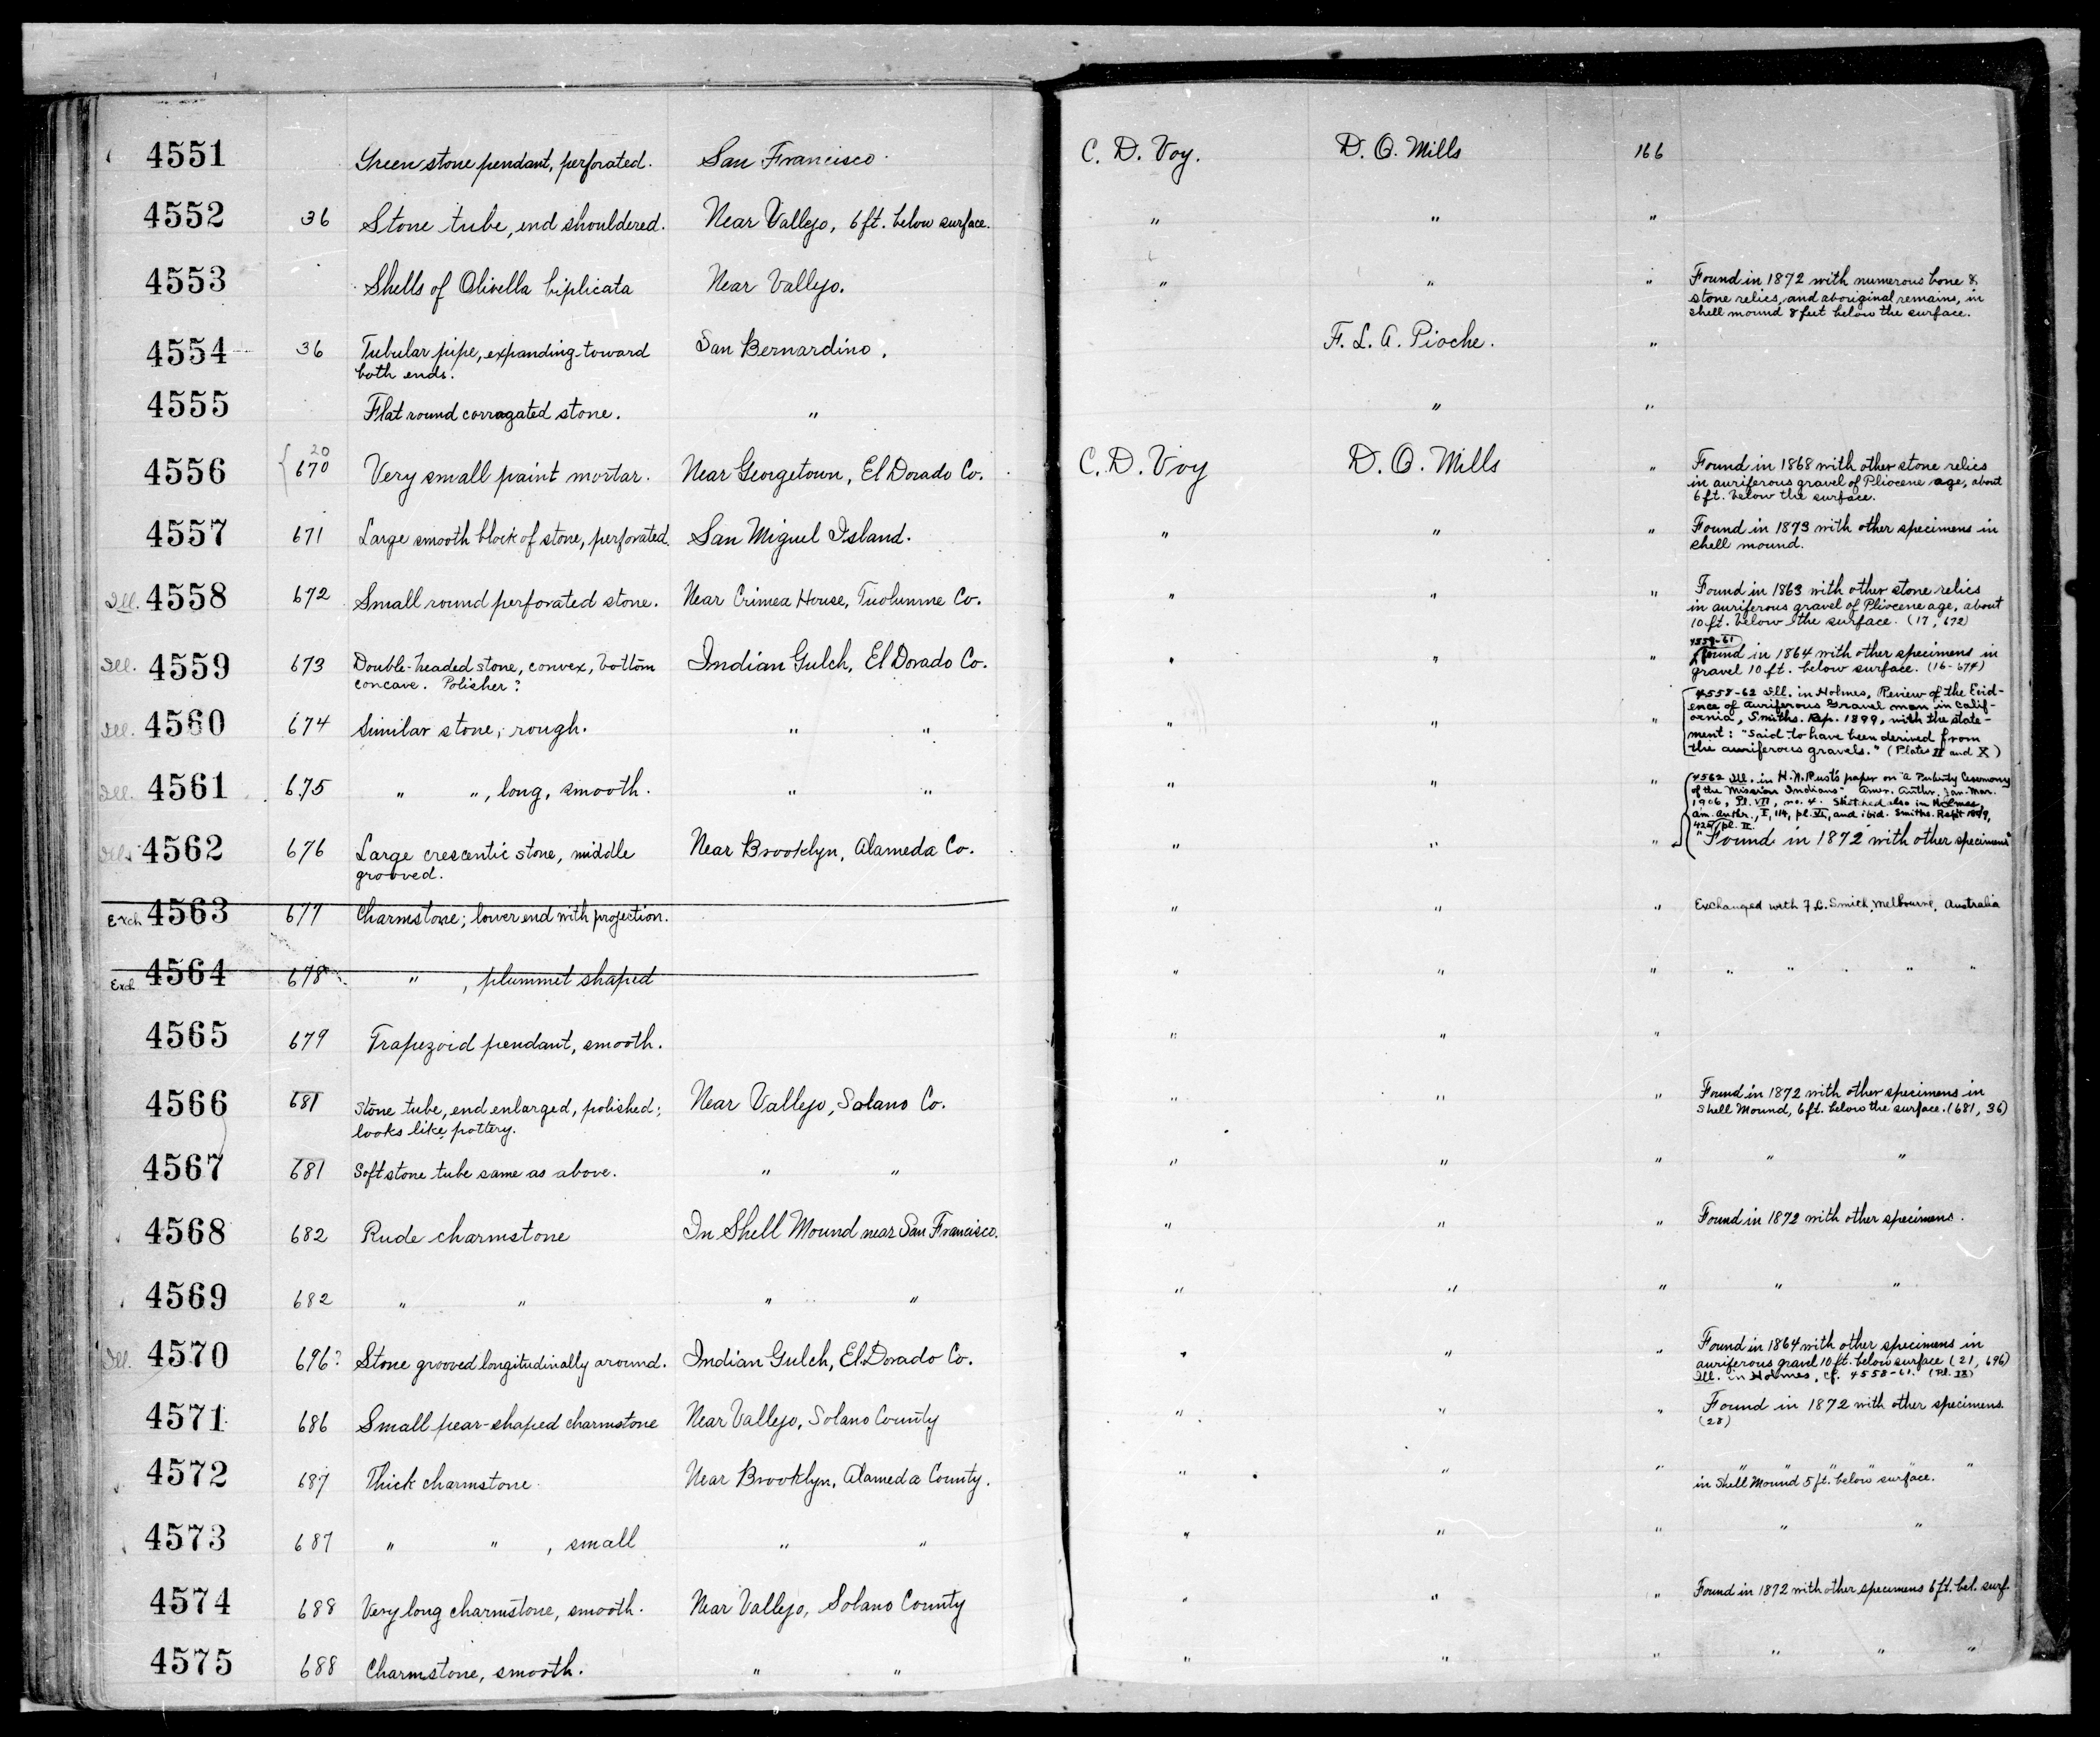 4551 Green stone pendant, perforated. San Francisco. C. D. Voy. D. O. Mills 166
4552 36 Stone tube, end shouldered. Near Vallejo, 6 ft. below surface. " " "
4553 Shells of Olivella biplicata Near Vallejo. " " " Found in 1872 with numerous bone &
stone relics, and aboriginal remains, in
shell mound 8 feet below the surface.
4554 36 Tubular pipe, expanding toward San Bernardino. F. L. A. Pioche. "
both ends.
4555 Flat round corragated stone. " " "
4556 20
670 Very small paint mortar. Near Georgetown, El Dorado Co. C. D. Voy D. O. Mills " Found in 1868 with other stone relics
in auriferous gravel of Pliocene age, about
6 ft. below the surface.
4557 671 Large smooth block of stone, perforated. San Miguel Island. " " " Found in 1873 with other specimens in
shell mound.
Ill. 4558 672 Small round perforated stone. Near Crimea House, Tuolumne Co. " " " Found in 1863 with other stone relics
in auriferous gravel of Pliocene age, about
10 ft. below the surface. (17, 672)
4559-61
Ill. 4559 673 Double-headed stone, convex, bottom Indian Gulch, El Dorado Co. " " " Found in 1864 with other specimens in
concave. Polisher? gravel 10 ft. below surface. (16-674)
Ill. 4560 674 Similar stone, rough. " " " " " 4558-62 Ill. in Holmes, Review of the Evid-
ence of Auriferous Gravel man in Calif-
ornia, Smiths. Rep. 1899, with the state-
ment: "Said to have been derived from
the auriferous gravels." (Plates II and X)
Ill. 4561 675 " ", long, smooth. " " " " " 4562 Ill. in H. N. Rust's paper on "a Puberty Ceremony
of the Mission Indians" Amer. Anthr. Jan-Mar.
1906, Pl. VII, no. 4. Sketched also in Holmes,
am. anthr., I, 114, pl. VI, and ibid. Smiths. Rept 1899,
pl. II.
Ill. 4562 676 Large crescentic stone, middle Near Brooklyn, Alameda Co. " " " "Found in 1872 with other specimens"
grooved.
Exch 4563 677 Charmstone; lower end with projection. " " " Exchanged with F. L. Smith, Melbourne, Australia
Exch 4564 678 " , plummet shaped " " " " " " " "
4565 679 Trapezoid pendant, smooth. " " "
4566 681 Stone tube, end enlarged, polished; Near Vallejo, Solano Co. " " " Found in 1872 with other specimens in
looks like pottery. Shell Mound, 6 ft. below the surface. (681, 36)
4567 681 Soft stone tube same as above. " " " " " " "
4568 682 Rude charmstone In Shell Mound near San Francisco. " " " Found in 1872 with other specimens.
4569 682 " " " " " " " " "
Ill. 4570 696? Stone grooved longitudinally around. Indian Gulch, El Dorado Co. " " " Found in 1864 with other specimens in
auriferous gravel 10 ft. below surface (21, 696)
Ill. in Holmes, cf. 4558-61. (Pl. IX)
4571 686 Small pear-shaped charmstone Near Vallejo, Solano County " " " Found in 1872 with other specimens.
(28)
4572 687 Thick charmstone Near Brooklyn, Alameda County. " " " " " " " "
in Shell Mound 5 ft. below surface.
4573 687 " " , small " " " " " " "
4574 688 Very long charmstone, smooth. Near Vallejo, Solano County " " " Found in 1872 with other specimens 6 ft. bel. surf.
4575 688 Charmstone, smooth. " " " " " " " "